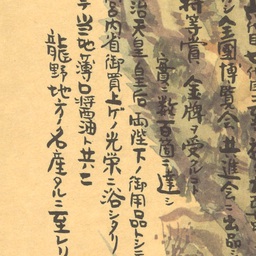 シ全國博覧会共進会ニ出品シ
特等賞金牌ヲ受クルコ
實ニ數百回ニ達シ
治天皇皇后両陛下ノ御用品トシテ
宮内省御買上ゲノ光栄ニ浴シタリ
テ当地薄口醤油ト共ニ
龍野地方ノ名産タルニ至レリ